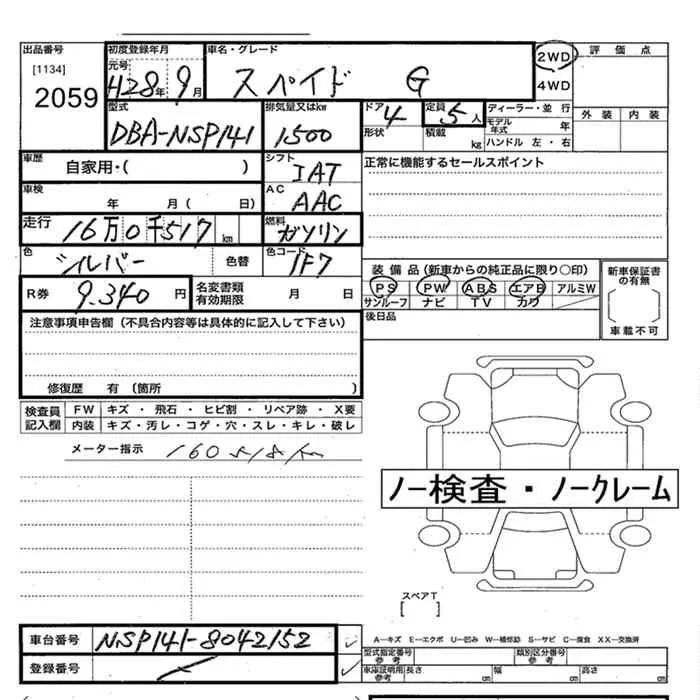 出品番号 初度登録年月 車名・グレード 評価点
[1134] 元号 2WD
2059 H28年 9月 スペイド G 4WD
型式 排気量又はkw ドア 4 定員 5人 ディーラー・並 行 外装 内装
DBA-NSP141 1500 形状 積載 kg モデル年式 年
ハンドル 左・右
車歴 自家用・( ) シフト IAT 正常に機能するセールスポイント
車検 年 月 ( 日) AC AAC
走行 16万0千517km 燃料 ガソリン
色 シルバー 色替 色コード 1F7 装備品(新車からの純正品に限り〇印) 新車保証書の有無
R券 9.340円 名変書類有効期限 月 日 PS PW ABS エアB アルミW
サンルーフ ナビ TV カワ
注意事項申告欄(不具合内容等は具体的に記入して下さい) 後日品 車載不可
修復歴 有 (箇所 )
検査員記入欄 FW キズ ・ 飛石 ・ ヒビ割 ・ リペア跡 ・ X要
内装 キズ・汚レ・コゲ・穴・スレ・キレ・破レ
メーター指示 160518km
ノー検査・ノークレーム
スペアT
[ ]
車台番号 NSP141-8042152 A―キズ E―エクボ U―凹み W―補修跡 S―サビ C―腐食 XX―交換済
登録番号 型式指定番号 参考 類別区分番号 参考
車庫証明用 参考 長さ cm 幅 cm 高さ cm